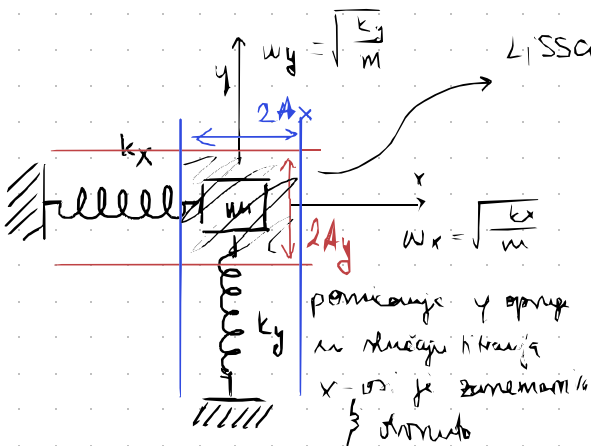 ωy = √(ky/m)
LiSSA
y
2Ax
kx
x
m
2Ay
ωx = √(kx/m)
ky
pomicanje y opruge
u slučaju titranja
x-osi je zanemari
i obrnuto